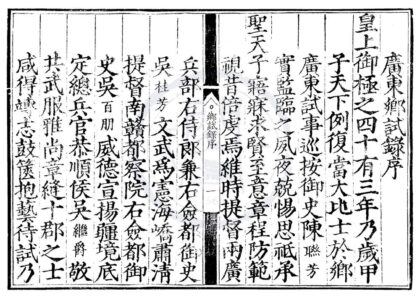 廣東鄉試錄序
皇上御極之四十有三年乃歲甲
子天下例復當大比士於鄉
廣東試事巡按御史陳聯芳
實監臨之夙夜兢惕思祗承
聖天子寤寐求賢至意章程防範
視昔倍虔焉維時提督兩廣
鄉試錄序
兵部右侍郎兼右僉都御史
吳桂芳文武為憲海嶠肅清
提督南贛都察院右僉都御
史吳百朋威德宣揚疆境底
定總兵官恭順侯吳繼爵敬
共武服雅尚章縫十郡之士
咸得竦志鼓篋抱藝待試乃